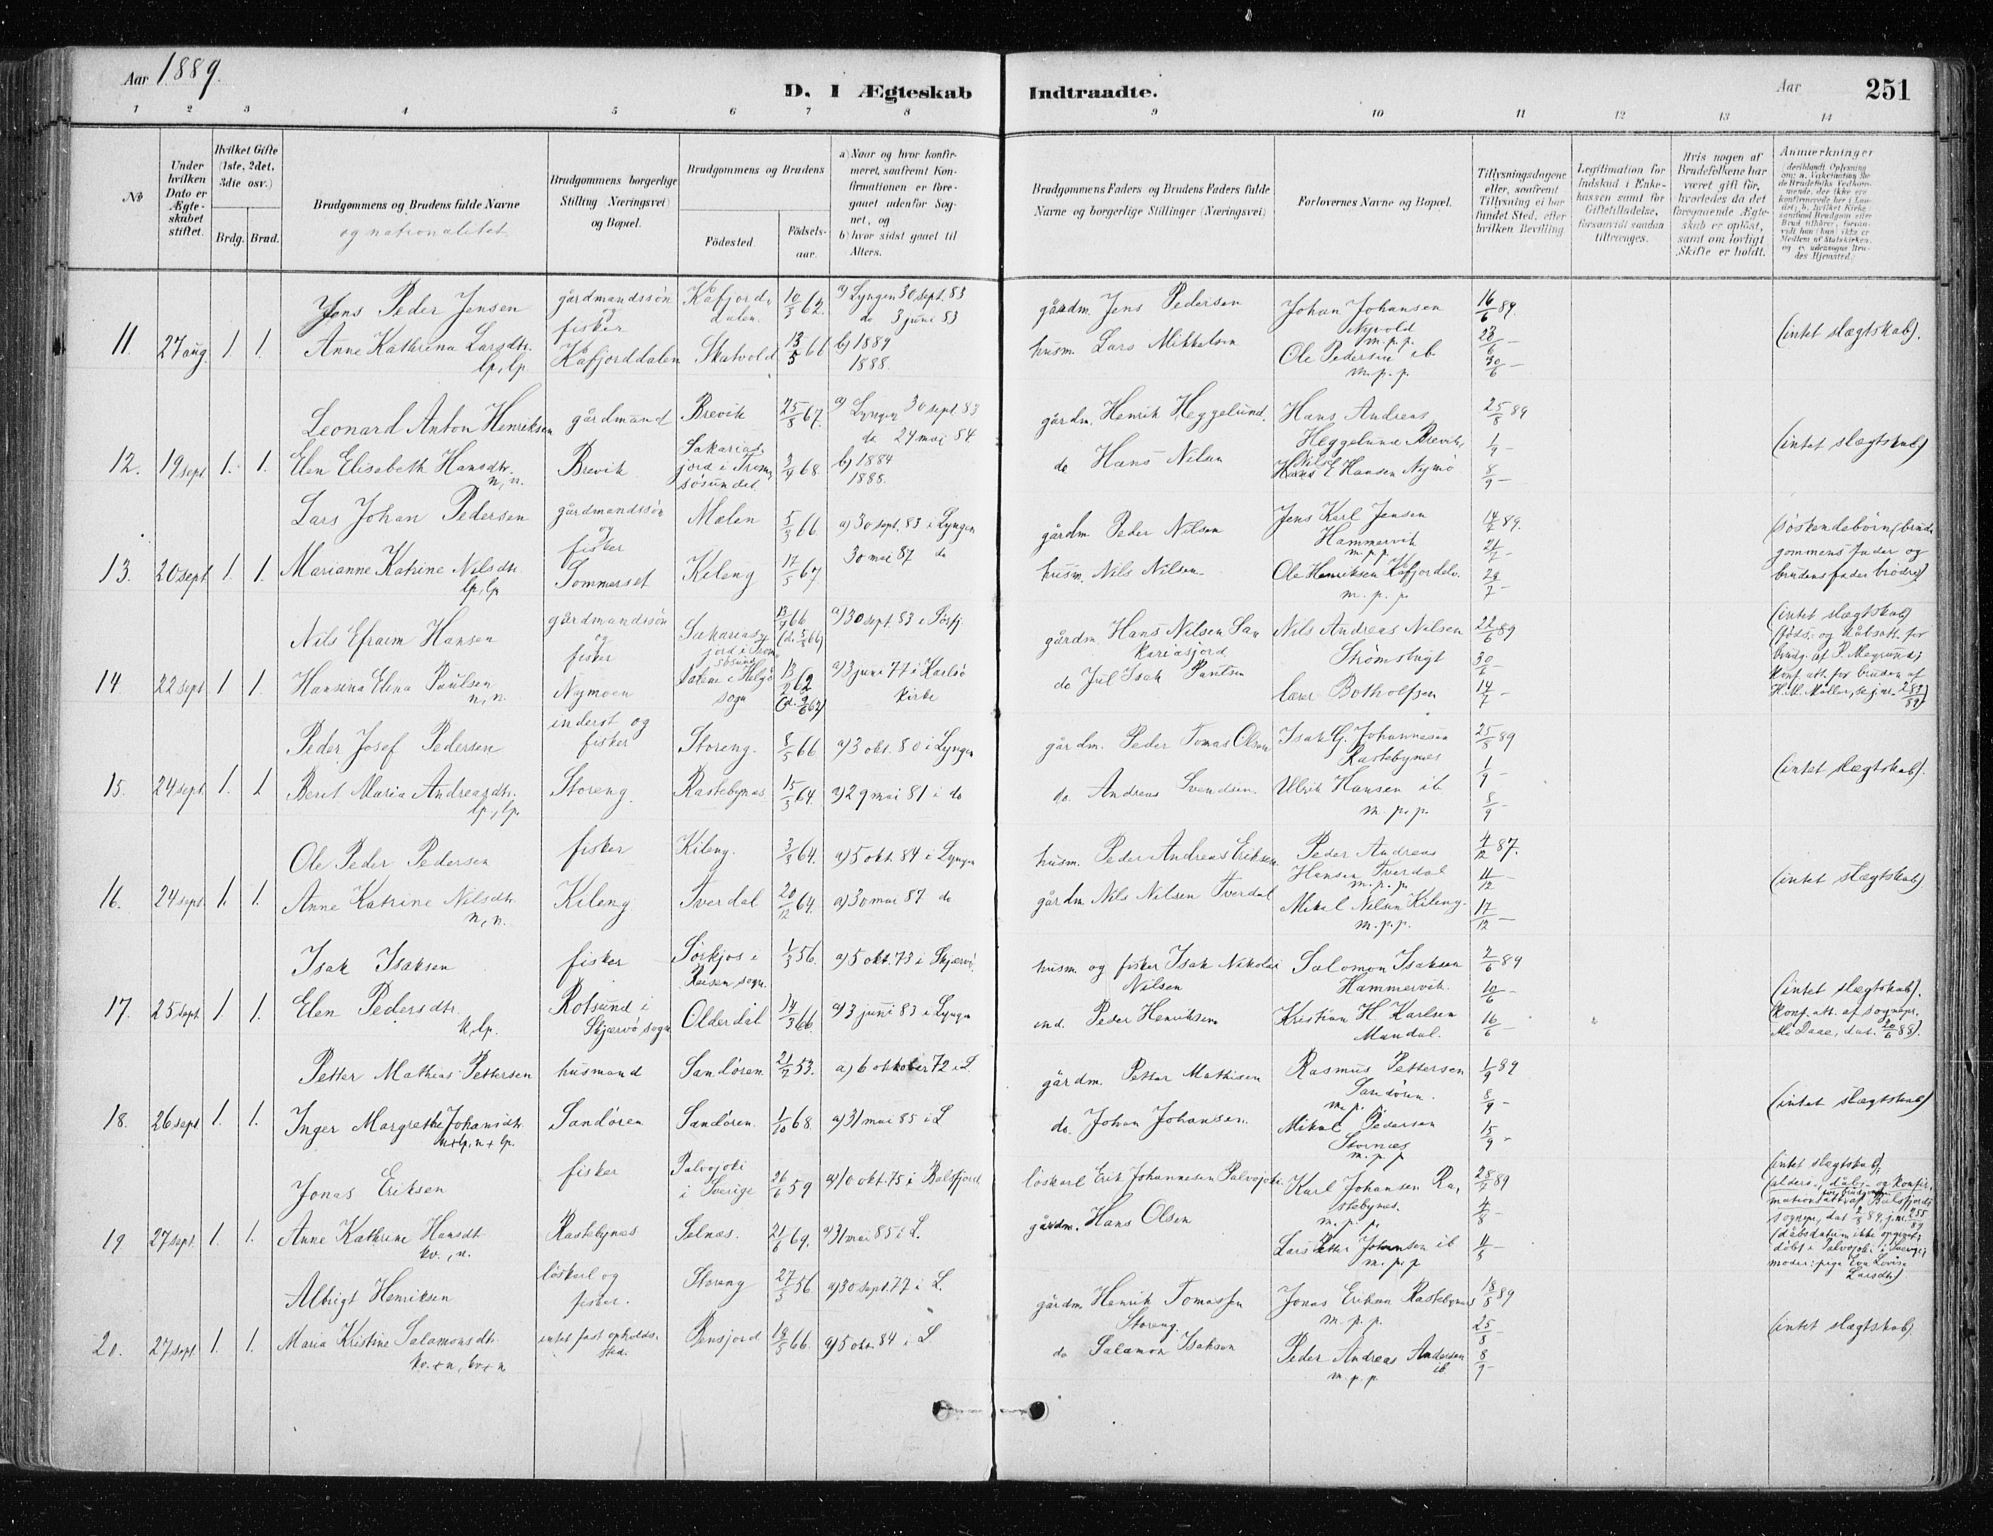 Aar 1889.
D. I Ægteskab Indtraadte.
Aar 251
1 2 3 4 5 6 7 8 9 10 11 12 13 14
No
Under hvilken Dato er Ægteskabet stiftet.
Hvilket Gifte (1ste, 2det, 3die osv.)
Brdg. Brud.
Brudgommens og Brudens fulde Navne
og nationalitet
Brudgommens borgerlige Stilling (Næringsvei) og Bopæl.
Brudgommens og Brudens
Födested. Födselsaar.
a) Naar og hvor konfirmeret, saafremt Konfirmationen er foregaaet udenfor Sognet, og
b) hvor sidst gaaet til Alters.
Brudgommens Faders og Brudens Faders fulde Navne og borgerlige Stillinger (Næringsvei)
Forlovernes Navne og Bopæl.
Tillysningsdagene eller, saafremt Tillysning ei har fundet Sted, efter hvilken Bevilling.
Legitimation for Indskud i Enkekassen samt for Giftetilladelse, forsaavidt saadan tiltrænges.
Hvis nogen af Brudefolkene har været gift för, hvorledes da det foregaaende Ægteskab er oplöst, samt om lovligt Skifte er holdt.
Anmerkninger
11. 27 aug. 1 1. Jens Peder Jensen gårdmandssön og fisker Kåfjorddalen 10/3 62. a) Lyngen 30 sept. 83 gårdm. Jens Pedersen Johan Johansen Nyvold m.p.p. 16/6 89.
Anne Kathrina Larsdtr. lp, lp Kåfjorddalen Skatvold 13/5 66 do 3 juni 83 b) 1889 1888. husm. Lars Mikkelsen Ole Pedersen ib m.p.p. 23/6 – 30/6 – (intet slægtskab).
12. 19 sept. 1. 1. Leonard Anton Henriksen gårdmand Brevik 25/8 67. a) Lyngen 30 sept. 83 gårdm. Henrik Heggelund. Hans Andreas Heggelund Brevik, 25/8 89
Elen Elisabeth Hansdtr. n, n. Brevik Sakariasjord i Tromsösundet. 68. do 24 mai 84 b) 1884 1888. do Hans Nilsen Nils E Hansen Nymö 1/9 – 8/9 – (intet slægtskab)
13. 20 sept 1. 1. Lars Johan Pedersen gårdmandssön og fisker Molen 5/3 66. a) 30 sept. 83 i Lyngen gårdm. Peder Nilsen Jens Karl Jensen Hammervik m.p.p. 14/7 89.
Marianne Katrine Nilsdtr. lp, lp Sommerset Kileng 17/5 67 30 mai 87 do husm. Nils Nilsen Ole Henriksen Kåfjordelv. m.p.p. 21/7 – 28/7 – söskendebörn (brudgommens fader og brudens fader brödre)
14 22 sept 1 1 Nils Efraim Hansen gårdmandssön og fisker a) 30 sept. 83 i gårdm. Hans Nilsen Sakariasjord Nils Andreas Nilsen Strömsligt 89
Hansina Elena Paulsen n, n. Nymoen 62 a) 3 juni 77 i Karlsö kirke do Botholfsen 30/6 – 14/7 – (intet slægtskab)
15. 24 sept. 1. 1 Peder Josef Pedersen inderst og fisker Storeng. 8/5 66 a) 3 okt. 80 i Lyngen gårdm. Peder Tomas Olsen Isak G. Johannesen Rastebynæs 25/8 89
Berit Maria Andreasdtr. lp, lp. Storeng. Rastebynæs. 15/3 64. a) 29 mai 81 i do do. Andreas Svendsen. Ulrik Hansen ib. m.p.p. 1/9 – 8/9 – (intet slægtskab).
16. 24 sept. 1. 1. Ole Peder Pedersen fisker Kileng. 3/3 64. a) 5 okt. 84 i Lyngen husm. Peder Andreas Eriksen. Peder Andreas Hansen Tverdal m.p.p. 4/12 87.
Anne Katrine Nilsdtr. n, n. Kileng Tverdal 20/12 64. a) 30 mai 87 do gårdm. Nils Nilsen Tverdal Mikal Nilsen Kileng. m.p.p. 11/12 17/12 – (intet slægtskab)
17. 25 sept. 1. 1. Isak Isaksen fisker Sörkjos i Reisen, sogn. 1/3 56. a) 5 okt. 73 i Skjærvö. husm. og fisker Isak Nikolai Nilsen Salomon Isaksen Hammervik. 2/6 89
Elen Pedersdtr. n, lp. Rotsund i Skjærvö sogn Olderdal 14/3 66 a) 3 juni 83 i Lyngen ind. Peder Henriksen Kristian H. Karlsen Mandal. 10/6 – 16/6 – (intet slægtskab). konf. att. af sognepr. Daae, dat. 20/6 88).
18. 26 sept 1. 1. Petter Mathias Pettersen husmand Sandören 21/2 53. a) 6 oktober 72 i L. gårdm. Petter Mathisen Rasmus Pettersen Sandören. m.p.p. 1/9 89
Inger Margrethe Johansdtr. n+lp, n+lp. Sandören Sandören. 1/10 68. a) 31 mai 85 i L do. Johan Johansen. Mikal Pedersen Stornæs m.p.p 8/9 – 15/9 – (intet slægtskab)
19 27 sept. 1. 1. Jonas Eriksen fisker Palvojoki i Sverige 26/6 59 a) 10 okt. 75 i Balsfjord löskarl Erik Johannesen Palvojoki Karl Johansen Rastebynes. m.p.p. 28/7 89
Anne Kathrine Hansdt. kv., n. Rastebynæs Selnæs. 21/6 69. a) 31 mai 85 i L. gårdm. Hans Olsen Lars Petter Johansen ib m.p.p 4/8 – 11/8 – (intet slægtskab), (alders-, dåbs- og konfirmationsatt. af Balsfjords sognepr., (dåbsdatum ikke opgivet; döbt i Palvojoki i Sverige; moder: pige Eva Lovise Larsdtr)
20. 27 sept. 1. 1. Albrigt Henriksen löskarl og fisker. Storeng 27/3 56. a) 30 sept. 77 i L. gårdm. Henrik Tomassen Storeng Jonas Eriksen Rastebynæs m.p.p. 18/8 89
Maria Kristine Salamonsdt. kv.+n, kv+n intet fast opholdssted. Pensjord 18/5 66. a) 5 okt. 84 i L do Salamon Isaksen Peder Andreas Andersen ib. m.p.p. 25/8 – 8/9 – (intet slægtskab)